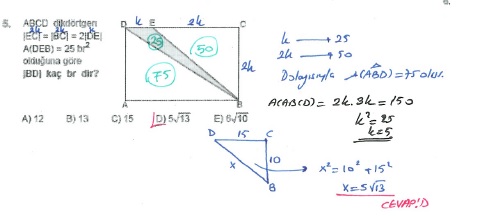 5. ABCD dikdörtgen
|EC| = |BC| = 2|DE|
2k 2k k
A(DEB) = 25 br²
olduğuna göre
|BD| kaç br dir?
D k E 2k C
25
50
75
2k
A B
A) 12 B) 13 C) 15 D) 5√13 E) 6√10
k → 25
2k → 50
Dolayısıyla A(ABD) = 75 olur.
A(ABCD) = 2k.3k = 150
k² = 25
k = 5
D 15 C
x 10
B
x² = 10² + 15²
x = 5√13
CEVAP: D